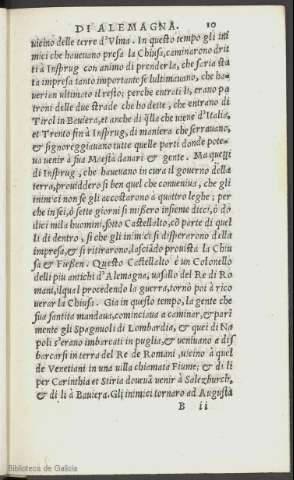 DI ALEMAGNA. 10
uicino delle terre d'Vlma. In questo tempo gli ini
mici che haueuano presa la Chiusa, caminarono drit
ti à Insprug con animo di prenderla, che saria sta
ta impresa tanto importante se l'ultimauano, che ha-
uerian ultimato il resto; perche entrati li, erano pa
troni delle due strade che ho dette, che entrano di
Tirol in Bauiera, et anche di q̃lla che uiene d'Italia,
et Trento fin à Insprug, di maniera che serrauano,
& signoreggiauano tutte quelle parti donde pote-
ua uenir à sua Maestà danari & gente. Ma quelli
di Insprug, che haueuano in cura il gouerno della
terra, prouiddero si ben quel che conueniua, che gli
inimici non se gli accostarono a quattro leghe; per
che in sei, ò sette giorni si misero insieme dieci, ò do
dici mila huomini, sotto Castellalto, cō parte di quel
li di dentro, si che gli inimici si disperarono della
impresa, & si ritirarono, lasciãdo prouista la Chiu
sa & Fiessen. Questo Castellalto è un Colonello
delli piu antichi d'Alemagna, uasallo del Re di Ro
mani, ilqual procedendo la guerra, tornò poi à rico
uerar la Chiusa. Gia in questo tempo, la gente che
sua santità mandaua, cominciaua a caminar, & pari
mente gli Spagnuoli di Lombardia, & quei di Na
poli s'erano imbarcati in puglia, & ueniuano a dis
barcarsi in terra del Re de Romani, uicino à quel
de Venetiani in una uilla chiamata Fiume; & di li
per Carinthia et Stiria doueuã uenir à Salezburch,
& di li à Bauiera. Gli inimici tornaro ad Augusta
B ii
Biblioteca de Galicia